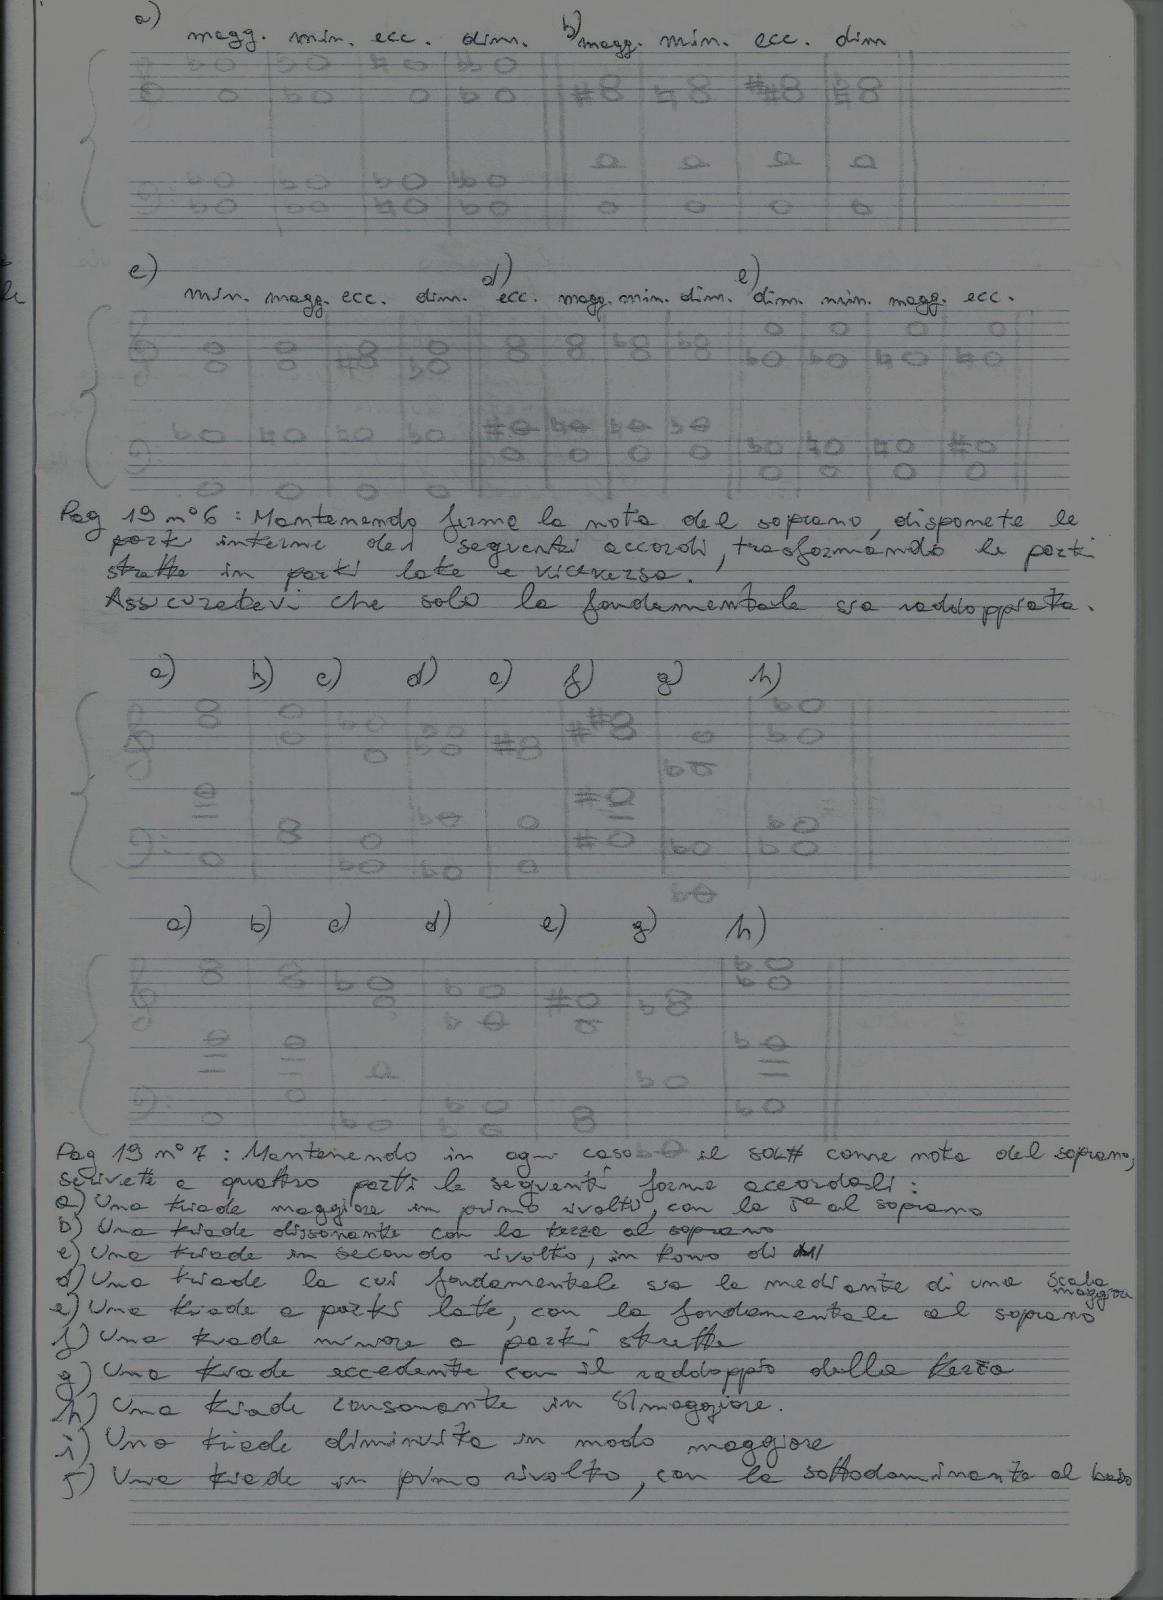 a) b)
magg. min. ecc. dim. magg. min. ecc. dim
c) d) e)
min. magg. ecc. dim. ecc. magg. min. dim. dim. min. magg. ecc.
Pag 19 n° 6 : Mantenendo ferma la nota del soprano, disponete le
parti interne dei seguenti accordi, trasformando le parti
strette in parti late e viceversa.
Assicuratevi che solo la fondamentale sia raddoppiata.
a) b) c) d) e) f) g) h)
a) b) c) d) e) g) h)
Pag 19 n° 7 : Mantenendo in ogni caso il SOL# come nota del soprano,
scrivete a quattro parti le seguenti forme accordali :
a) Una triade maggiore in primo rivolto, con la 5a al soprano
b) Una triade dissonante con la terza al soprano
c) Una triade in secondo rivolto, in tono di MI
d) Una triade la cui fondamentale sia la mediante di una scala maggiore
e) Una triade a parti late, con la fondamentale al soprano
f) Una triade minore a parti strette
g) Una triade eccedente con il raddoppio della terza
h) Una triade consonante in SI maggiore.
i) Una triade diminuita in modo maggiore
j) Una triade in primo rivolto, con la sottodominante al basso